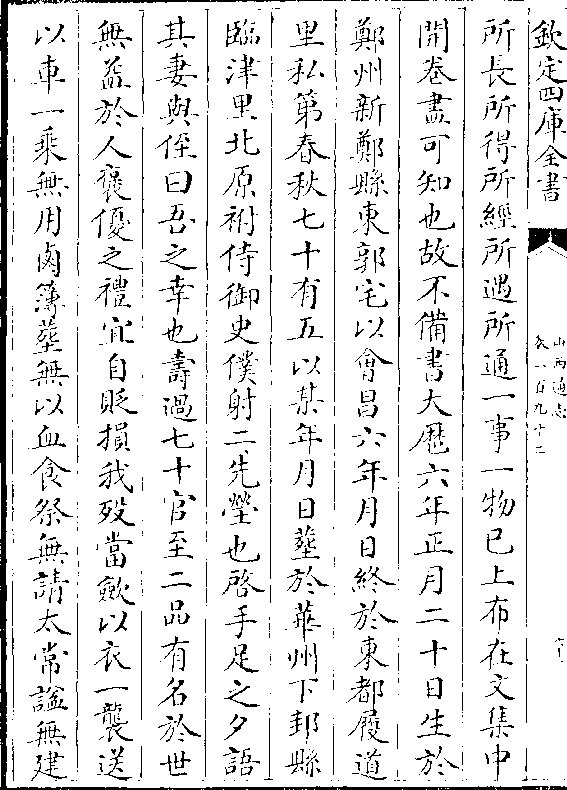 欽定四庫全書
山西通志
卷一百九十二
所長所得所經所遇所通一事一物已上布在文集中
開卷盡可知也故不備書大歷六年正月二十日生於
鄭州新鄭縣東郭宅以會昌六年月日終於東都履道
里私第春秋七十有五以某年月日塟於華州下邽縣
臨津里北原祔侍御史僕射二先塋也啓手足之夕語
其妻與侄曰吾之幸也壽過七十官至二品有名於世
無益於人褒優之禮宜自貶損我歿當歛以衣一襲送
以車一乘無用鹵簿塟無以血食祭無請太常諡無建